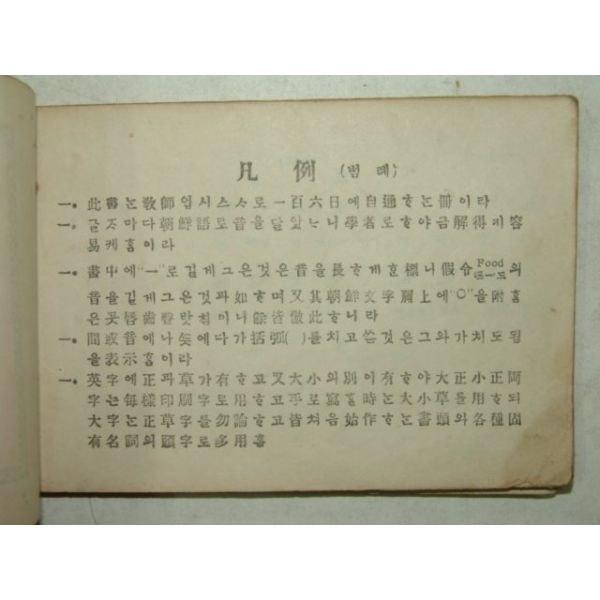 凡 例 (범 례)
一. 此書는敎師업시스ᄉ로一百六日에自通ᄒ는冊이라
一. 글ᄌ마다朝鮮語로音을달앗느니學者로ᄒ야금解得키容
易케흠이라
一. 書中에"一"로길게그은것은音을長ᄒ게ᄒ標니假令Food의
音을길게그은것과如ᄒ며又其朝鮮文字肩上에"○"을附흠
은唇齒聲맛처이니餘皆倣此ᄒ니라
一. 間或音에나矣에다가括弧( )를치고쓴것은그와가치도됨
을表示흠이라
一. 英字에正과草가有ᄒ고又大小의別이有ᄒ야大正小正
字는每樣印刷字로用ᄒ고手로寫ᄒ時는大小草를用ᄒ되
大字는正草字를勿論ᄒ고皆처음始作ᄒ는書頭와各種固
有名詞의頭字로多用흠